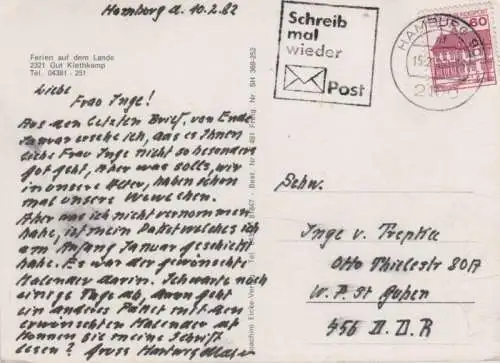 Hamburg d. 10.2.82
Ferien auf dem Lande
2321 Gut Kletkamp
Tel. 04381 - 251
Liebe
Frau Inge!
Aus den letzten Brief, von Ende
Januar ersehe ich, das es Ihnen
liebe Frau Inge nicht so besonders
got geht, Aber was solls, wir
in unsere Alter, haben schon
mal unsere Wewechen.
Aber was ich nicht vernommen
habe, ist mein Paket welches ich
am Anfang Januar geschickt
habe. Es war der gewünschte
Kalender darin. Ich warte noch
einige Tage ab, dann geht
ein anderes Paket mit dem
erwünschten Kalender ab
können Sie meine Schrift
lesen? Gruss
Schreib
mal
wieder
Post
HAMBURG
60
Schw.
Inge v.
Otto Thielestr 80A
W. P. St Guben
756 D. D. R